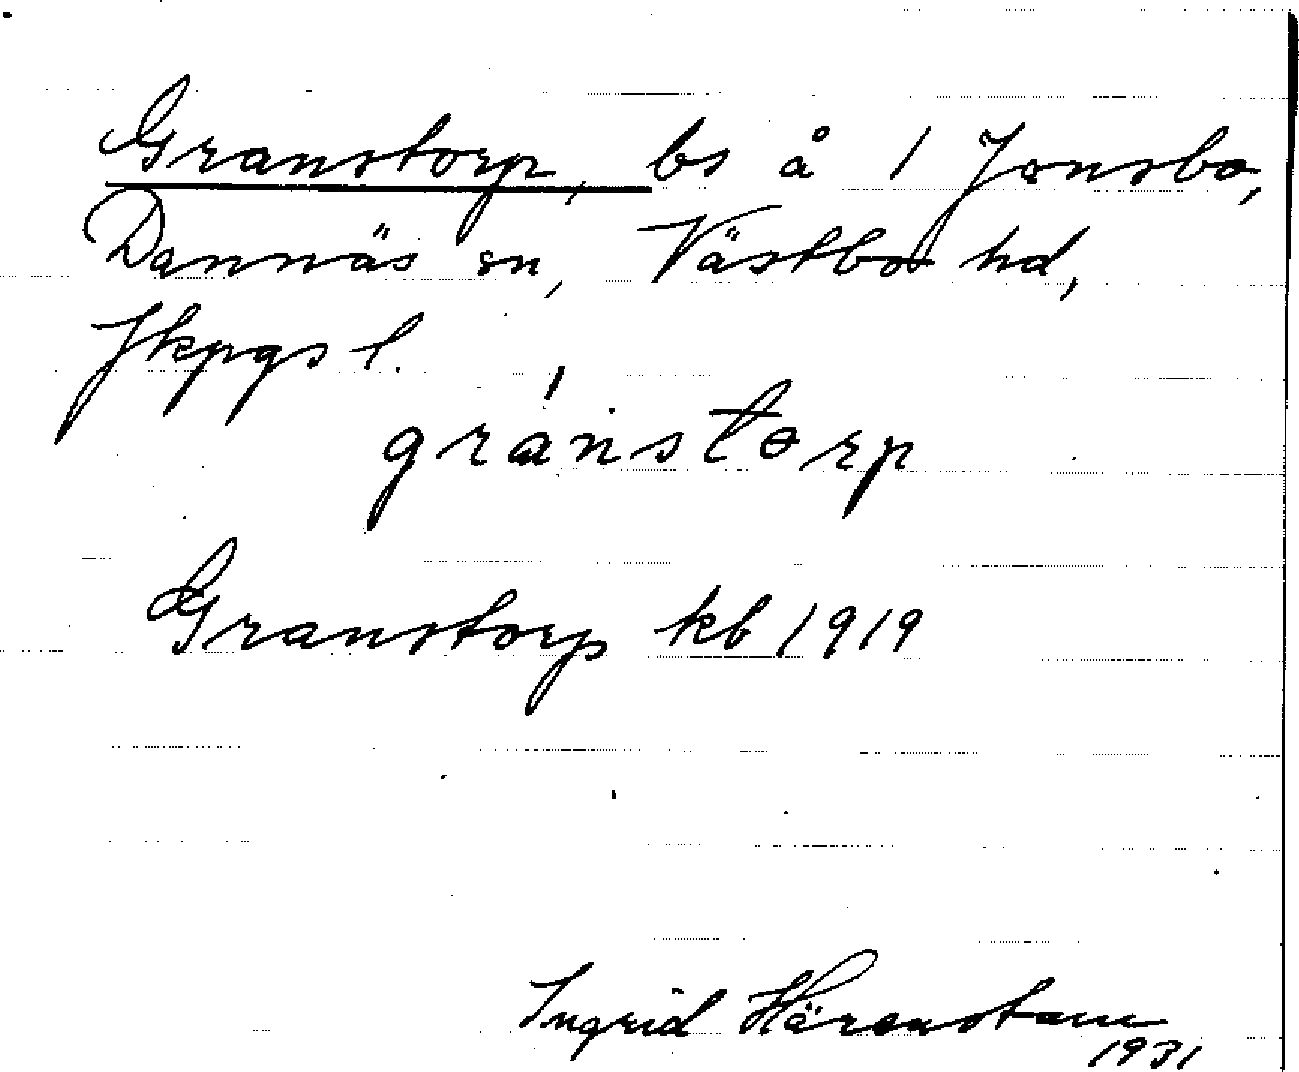 Granstorp, bs å 1 Jonsbo,
Dannäs sn, Västbo hd,
Jkpgs l.
gránstɵrp
Granstorp kb 1919
Ingrid Härenstam
1931